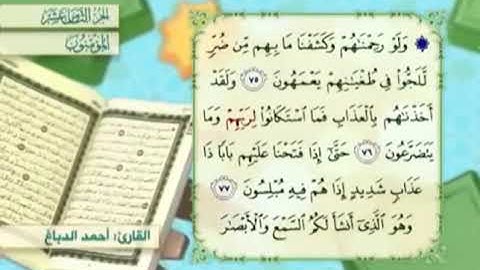 الجزء الثامن عشر
المؤمنون
وَلَوْ رَحِمْنَٰهُمْ وَكَشَفْنَا مَا بِهِم مِّن ضُرٍّ
لَّلَجُّوا۟ فِى طُغْيَٰنِهِمْ يَعْمَهُونَ ٧٥ وَلَقَدْ
أَخَذْنَٰهُم بِٱلْعَذَابِ فَمَا ٱسْتَكَانُوا۟ لِرَبِّهِمْ وَمَا
يَتَضَرَّعُونَ ٧٦ حَتَّىٰٓ إِذَا فَتَحْنَا عَلَيْهِم بَابًا ذَا
عَذَابٍ شَدِيدٍ إِذَا هُمْ فِيهِ مُبْلِسُونَ ٧٧
وَهُوَ ٱلَّذِىٓ أَنشَأَ لَكُمُ ٱلسَّمْعَ وَٱلْأَبْصَٰرَ
القارئ: أحمد الدباغ